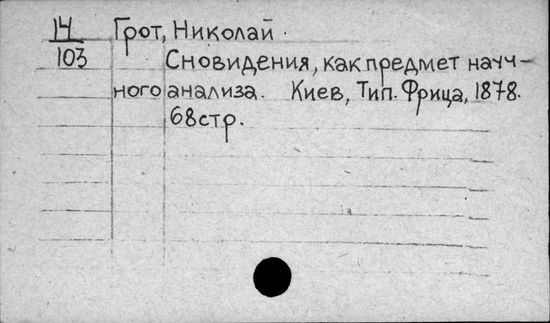 14 Грот, Николай.
103 Сновидения, как предмет науч-
ного анализа. Киев, Тип. Фрица, 1878.
68стр.